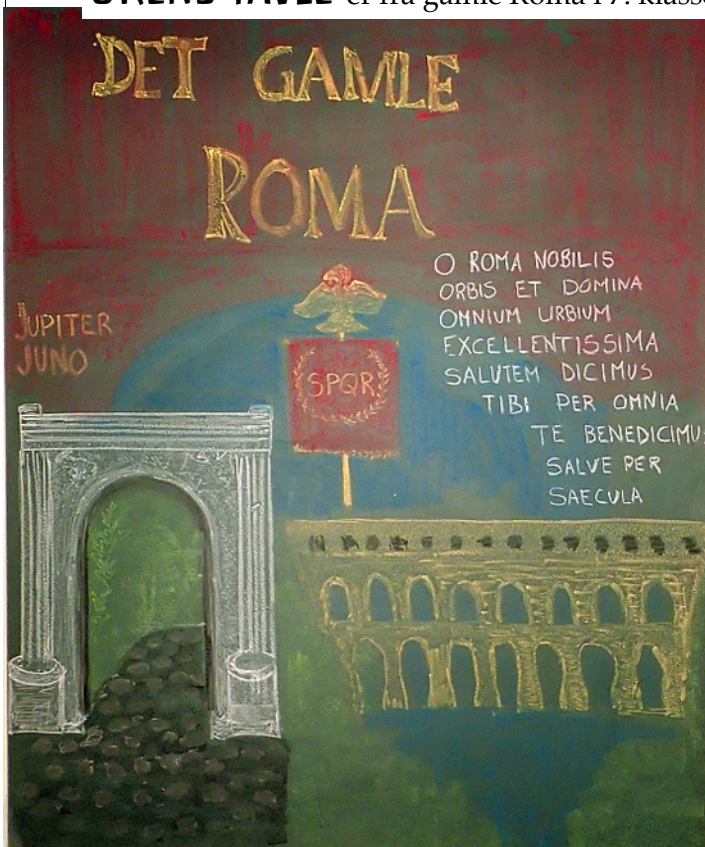 UKENS TAVLE er fra gamle Roma i 7. klasse
DET GAMLE
ROMA
JUPITER
JUNO
SPQR
O ROMA NOBILIS
ORBIS ET DOMINA
OMNIUM URBIUM
EXCELLENTISSIMA
SALUTEM DICIMUS
TIBI PER OMNIA
TE BENEDICIMU
SALVE PER
SAECULA